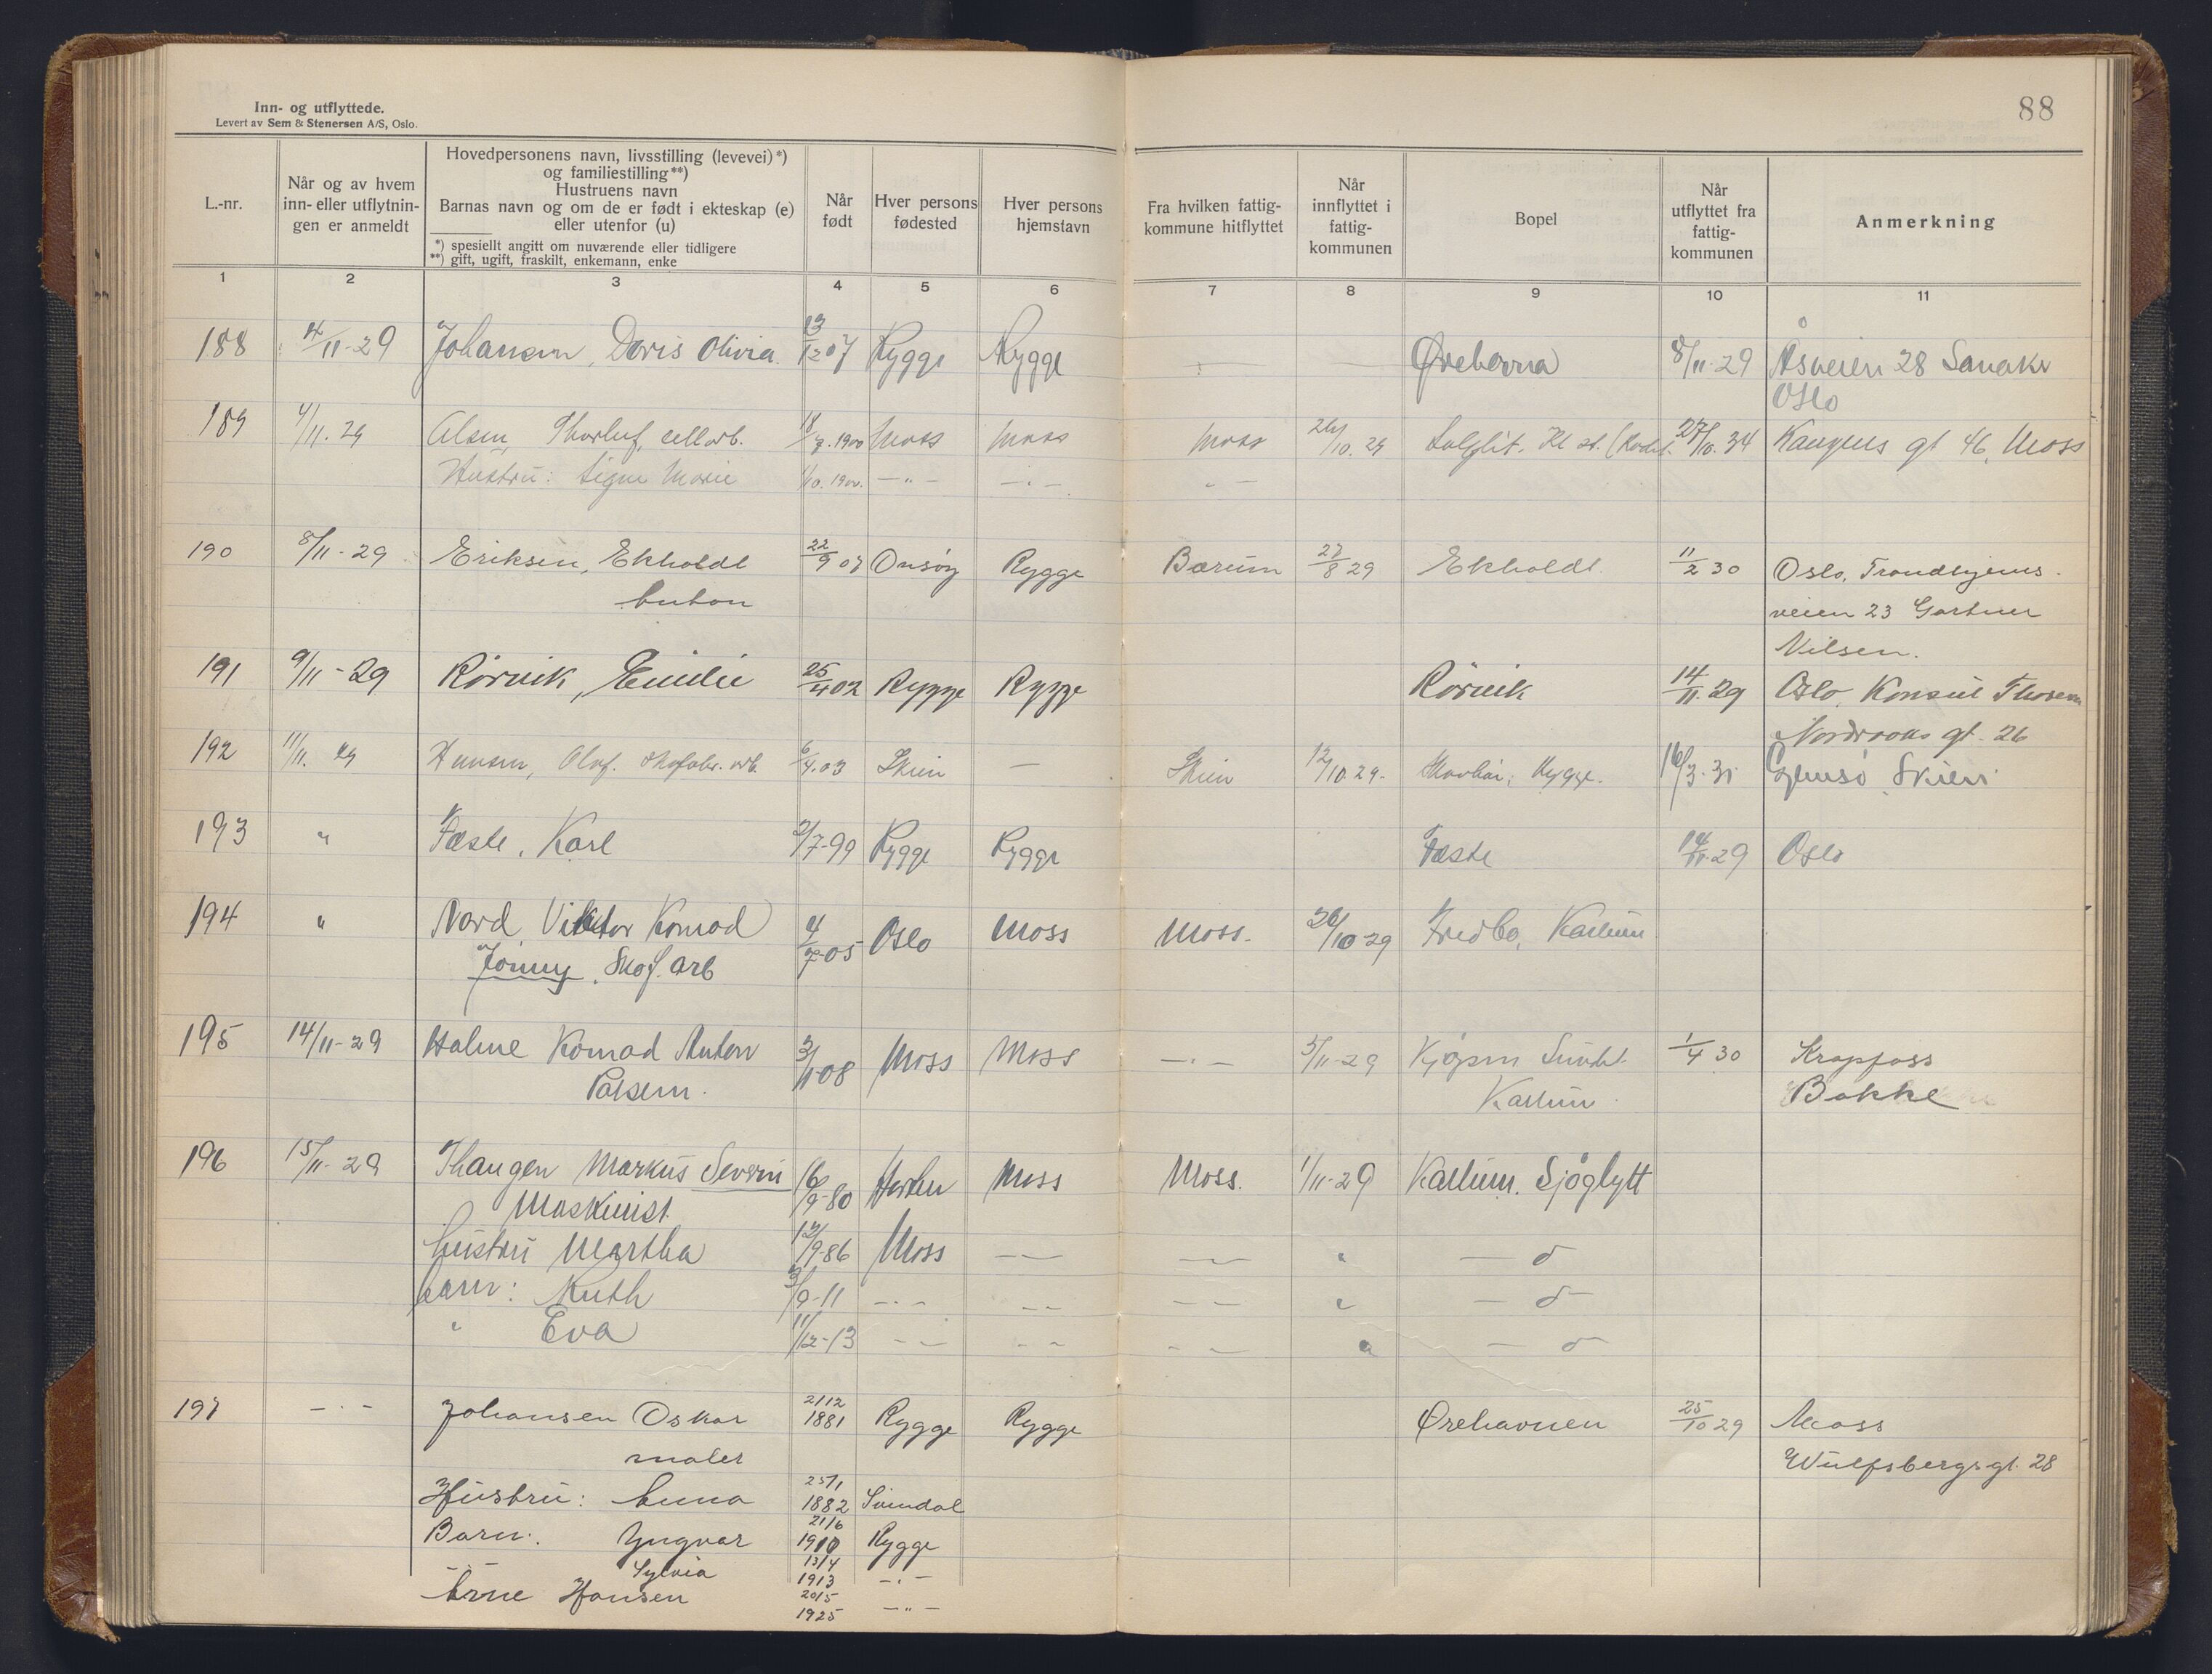 88
Inn- og utflyttede.
Levert av Sem & Stenersen A/S, Oslo.
L.-nr.
Når og av hvem
inn- eller utflytnin-
gen er anmeldt
Hovedpersonens navn, livsstilling (levevei)*)
og familiestilling**)
Hustruens navn
Barnas navn og om de er født i ekteskap (e)
eller utenfor (u)
*) spesiellt angitt om nuværende eller tidligere
**) gift, ugift, fraskilt, enkemann, enke
Når
født
Hver persons
fødested
Hver persons
hjemstavn
Fra hvilken fattig-
kommune hitflyttet
Når
innflyttet i
fattig-
kommunen
Bopel
Når
utflyttet fra
fattig-
kommunen
Anmerkning
1 2 3 4 5 6 7 8 9 10 11
188 4/11-29 Johansen, Doris Olivia 13/12 07 Rygge Rygge 8/11-29 Åsveien 28
Oslo
189 4/11. 29 Olsen, Thorluf, cell arb. 18/7. 1900 Moss Moss Moss 26/10. 29 27/10. 34 gt 46, Moss
Hustru: Signe Marie 1/10. 1900. — " — — " — " —
190 8/11-29 Eriksen, Ekholdt 22/9 07 Onsøy Rygge Bærum 27/8 29 Ekholdt 11/2 30 Oslo, Trondhjems-
Anton veien 23 Gartner
Nilsen.
191 9/11-29 Rørvik, Emilie 25/4 02 Rygge Rygge Rørvik 14/11. 29 Oslo, Konsul
Nordraaks gt. 26
192 11/11. 29 Hansen, Olaf. Skofabr. arb. 6/4. 03 Skien — Skien 12/10. 29. Rygge. 16/3-31 Gjemsø Skien
193 " Fæste, Karl 2/7-99 Rygge Rygge Fæste 14/11-29 Oslo
194 " Nord, Viktor Konrad 4/7-05 Oslo Moss Moss. 26/10-29 Fredbo, Kallum
Jonny. Skof. arb
195 14/11-29 Holme Konrad Anton 3/11-08 Moss Moss — " — 5/11-29 1/4 30 Krapfoss
Kallum Bakke
196 15/11-29 Thaugen Markus Severin 16/9-80 Horten Moss Moss. 1/11-29 Kallum. Sjøglytt
Maskinist
hustru Martha 12/9-86 Moss — — — — " — o
barn: Ruth 3/9-11 — " — — — — — " — o
" Eva 11/12-13 — — — — — — " — o
197 — " — Johansen Oskar 21/12 1881 Rygge Rygge Ørehavnen 25/10 29 Moss
maler Wulfsbergs gt. 28
Hustru: Anna 25/1 1882 Svindal
Barn: Yngvar 21/6 1910 Rygge
— " — Sylvia 13/4 1913 — " —
Arne Hansen 20/5 1925 — " —